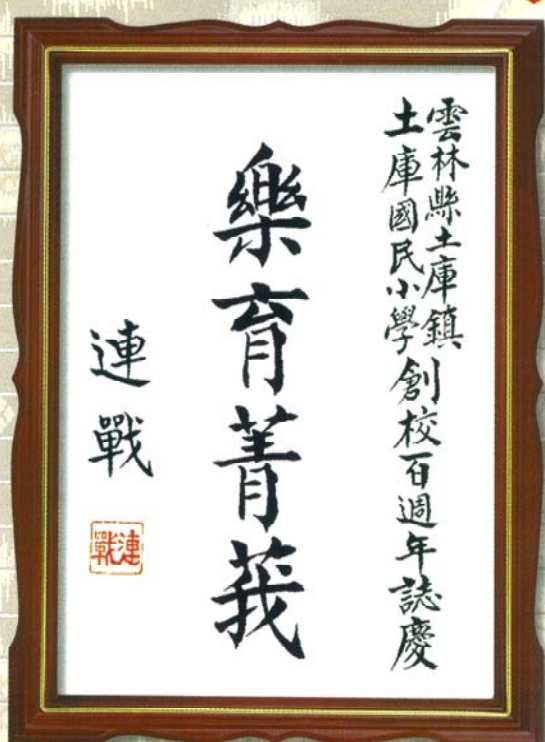 雲林縣土庫鎮
土庫國民小學創校百週年誌慶
樂育菁莪
連戰
連戰